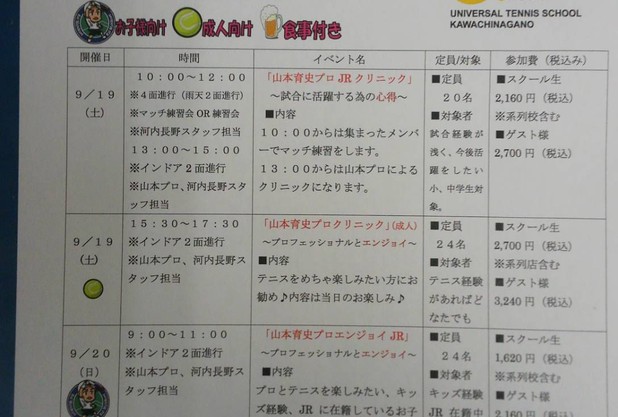 お子様向け 成人向け 食事付き
UNIVERSAL TENNIS SCHOOL
KAWACHINAGANO
開催日 時間 イベント名 定員/対象 参加費（税込み）
９／１９
（土）
１０：００～１２：００
※４面進行（雨天２面進行）
※マッチ練習会 OR 練習会
※河内長野スタッフ担当
１３：００～１５：００
※インドア２面進行
※山本プロ、河内長野スタ
ッフ担当
「山本育史プロ JR クリニック」
～試合に活躍する為の心得～
■内容
１０：００からは集まったメンバ
ーでマッチ練習をします。
１３：００からは山本プロによる
クリニックになります。
■定員
２０名
■対象者
試合経験が
浅く、今後活
躍をしたい
小、中学生対
象。
■スクール生
2,160 円（税込）
※系列校含む
■ゲスト様
2,700 円（税込）
９／１９
（土）
１５：３０～１７：３０
※インドア２面進行
※山本プロ、河内長野ス
タッフ担当
「山本育史プロクリニック」（成人）
～プロフェッショナルとエンジョイ～
■内容
テニスをめちゃ楽しみたい方にお
勧め♪内容は当日のお楽しみ♪
■定員
２４名
■対象者
テニス経験
があればど
なたでも
■スクール生
2,700 円（税込）
※系列店含む
■ゲスト様
3,240 円（税込）
９／２０
（日）
９：００～１１：００
※インドア２面進行
※山本プロ、河内長野
スタッフ担当
「山本育史プロエンジョイ JR」
～プロフェッショナルとエンジョイ～
■内容
プロとテニスを楽しみたい、キッ
ズ経験、JR に在籍しているお子
■定員
２４名
■対象者
キッズ経験
JR 在籍中
■スクール生
1,620 円（税込）
※系列校含む
■ゲスト様
2,160 円（税込）